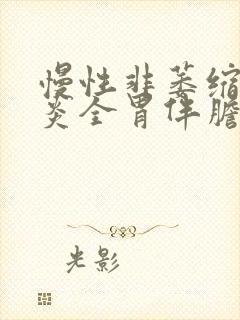 慢性非萎缩
炎全胃伴胆
光影